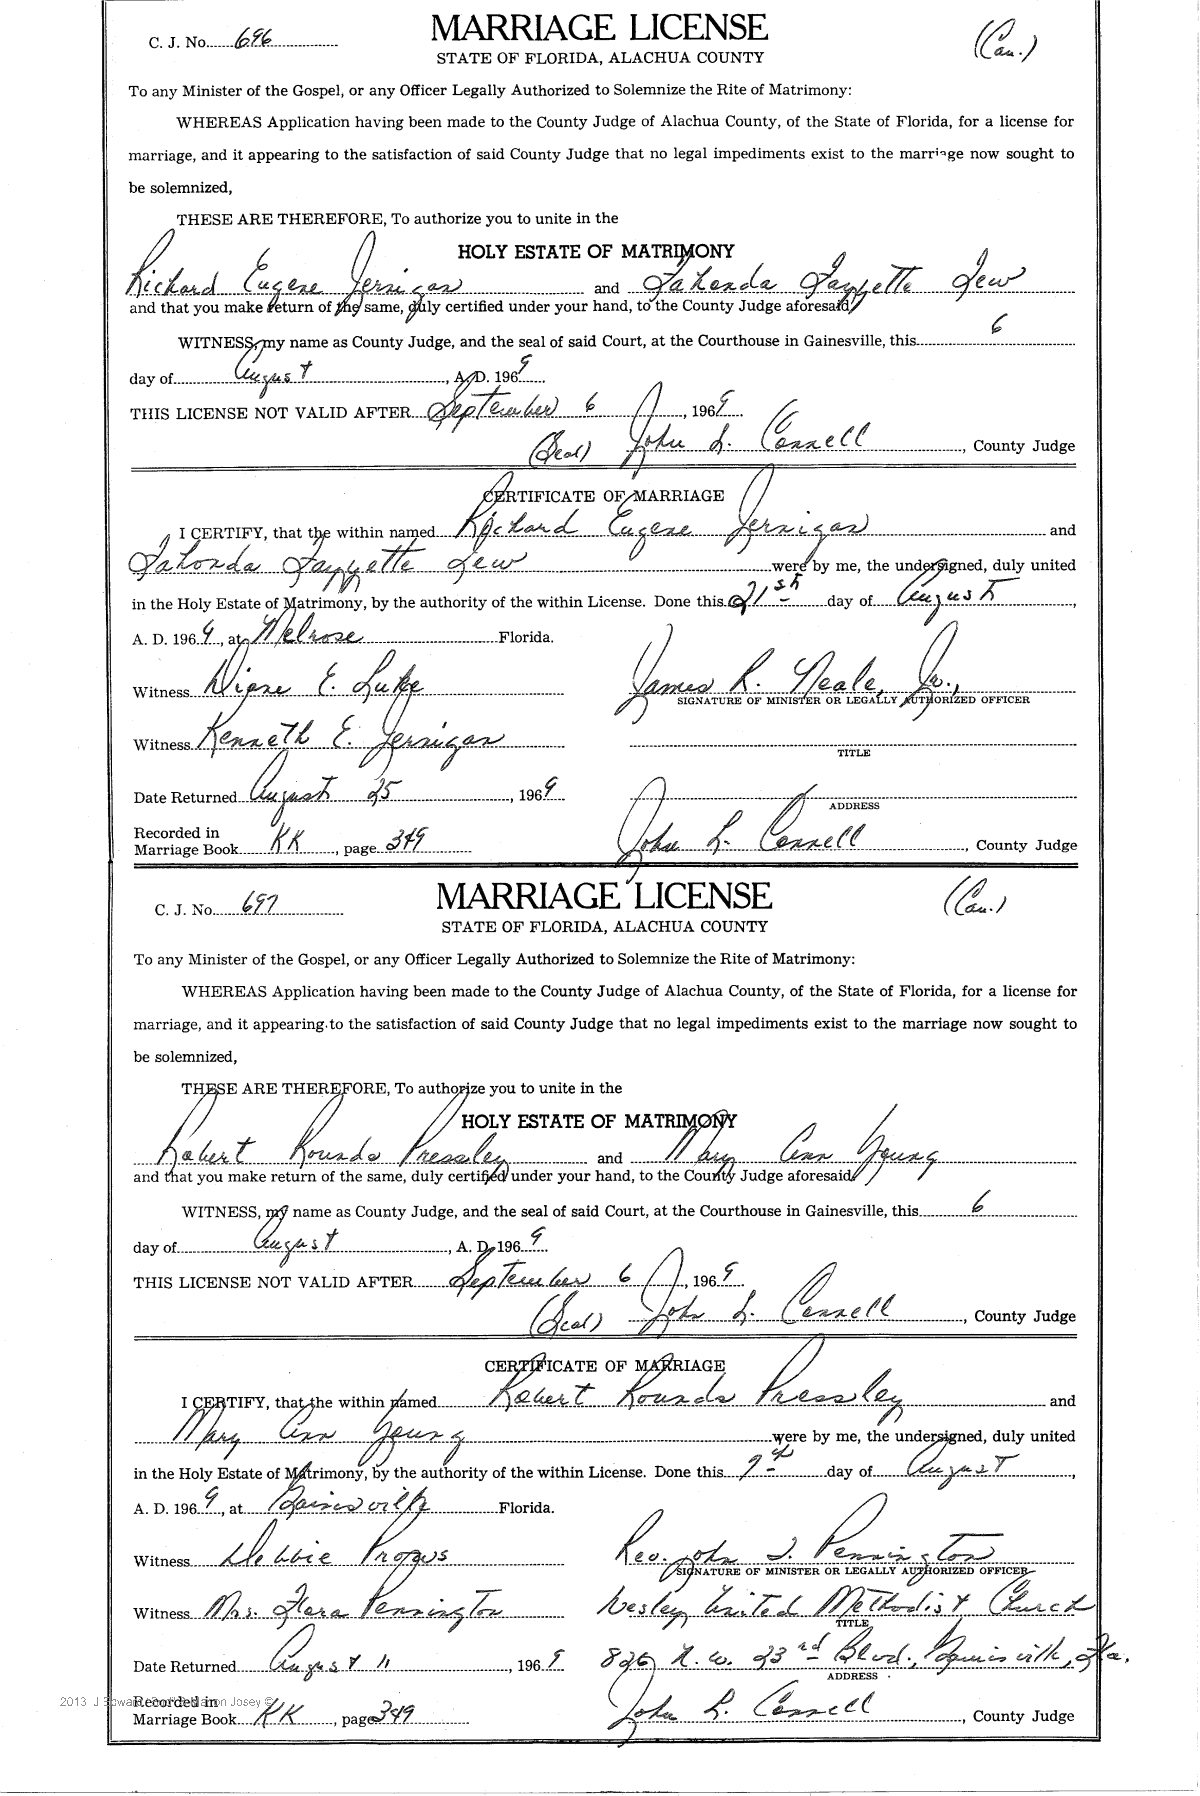 C. J. No. 696
MARRIAGE LICENSE
(Cau.)
STATE OF FLORIDA, ALACHUA COUNTY
To any Minister of the Gospel, or any Officer Legally Authorized to Solemnize the Rite of Matrimony:
WHEREAS Application having been made to the County Judge of Alachua County, of the State of Florida, for a license for
marriage, and it appearing to the satisfaction of said County Judge that no legal impediments exist to the marriage now sought to
be solemnized,
THESE ARE THEREFORE, To authorize you to unite in the
HOLY ESTATE OF MATRIMONY
Richard Eugene Jernigan and LaHonda Fayyette Lew
and that you make return of the same, duly certified under your hand, to the County Judge aforesaid
WITNESS, my name as County Judge, and the seal of said Court, at the Courthouse in Gainesville, this 6
day of August, A. D. 1969
THIS LICENSE NOT VALID AFTER September 6, 1969
(Seal) John L. Connell, County Judge
CERTIFICATE OF MARRIAGE
I CERTIFY, that the within named Richard Eugene Jernigan and
LaHonda Fayyette Lew were by me, the undersigned, duly united
in the Holy Estate of Matrimony, by the authority of the within License. Done this 21st day of August,
A. D. 1969, at Melrose Florida.
Witness Diane E. Luke James R. Neale, Jr.,
SIGNATURE OF MINISTER OR LEGALLY AUTHORIZED OFFICER
Witness Kenneth E. Jernigan
TITLE
Date Returned August 25, 1969
ADDRESS
Recorded in
Marriage Book KK, page 349 John L. Connell, County Judge
C. J. No. 697
MARRIAGE LICENSE
(Cau.)
STATE OF FLORIDA, ALACHUA COUNTY
To any Minister of the Gospel, or any Officer Legally Authorized to Solemnize the Rite of Matrimony:
WHEREAS Application having been made to the County Judge of Alachua County, of the State of Florida, for a license for
marriage, and it appearing to the satisfaction of said County Judge that no legal impediments exist to the marriage now sought to
be solemnized,
THESE ARE THEREFORE, To authorize you to unite in the
HOLY ESTATE OF MATRIMONY
Robert Rounds Pressley and Mary Ann Young
and that you make return of the same, duly certified under your hand, to the County Judge aforesaid
WITNESS, my name as County Judge, and the seal of said Court, at the Courthouse in Gainesville, this 6
day of August, A. D. 1969
THIS LICENSE NOT VALID AFTER September 6, 1969
(Seal) John L. Connell, County Judge
CERTIFICATE OF MARRIAGE
I CERTIFY, that the within named Robert Rounds Pressley and
Mary Ann Young were by me, the undersigned, duly united
in the Holy Estate of Matrimony, by the authority of the within License. Done this 9th day of August,
A. D. 1969, at Gainesville Florida.
Witness Debbie Propus Rev. John J. Pennington
SIGNATURE OF MINISTER OR LEGALLY AUTHORIZED OFFICER
Witness Mrs. Flora Pennington Wesley United Methodist Church
TITLE
Date Returned August 11, 1969 826 N. W. 23rd Blvd., Gainesville, Fla.
ADDRESS
Recorded in
Marriage Book KK, page 349 John L. Connell, County Judge